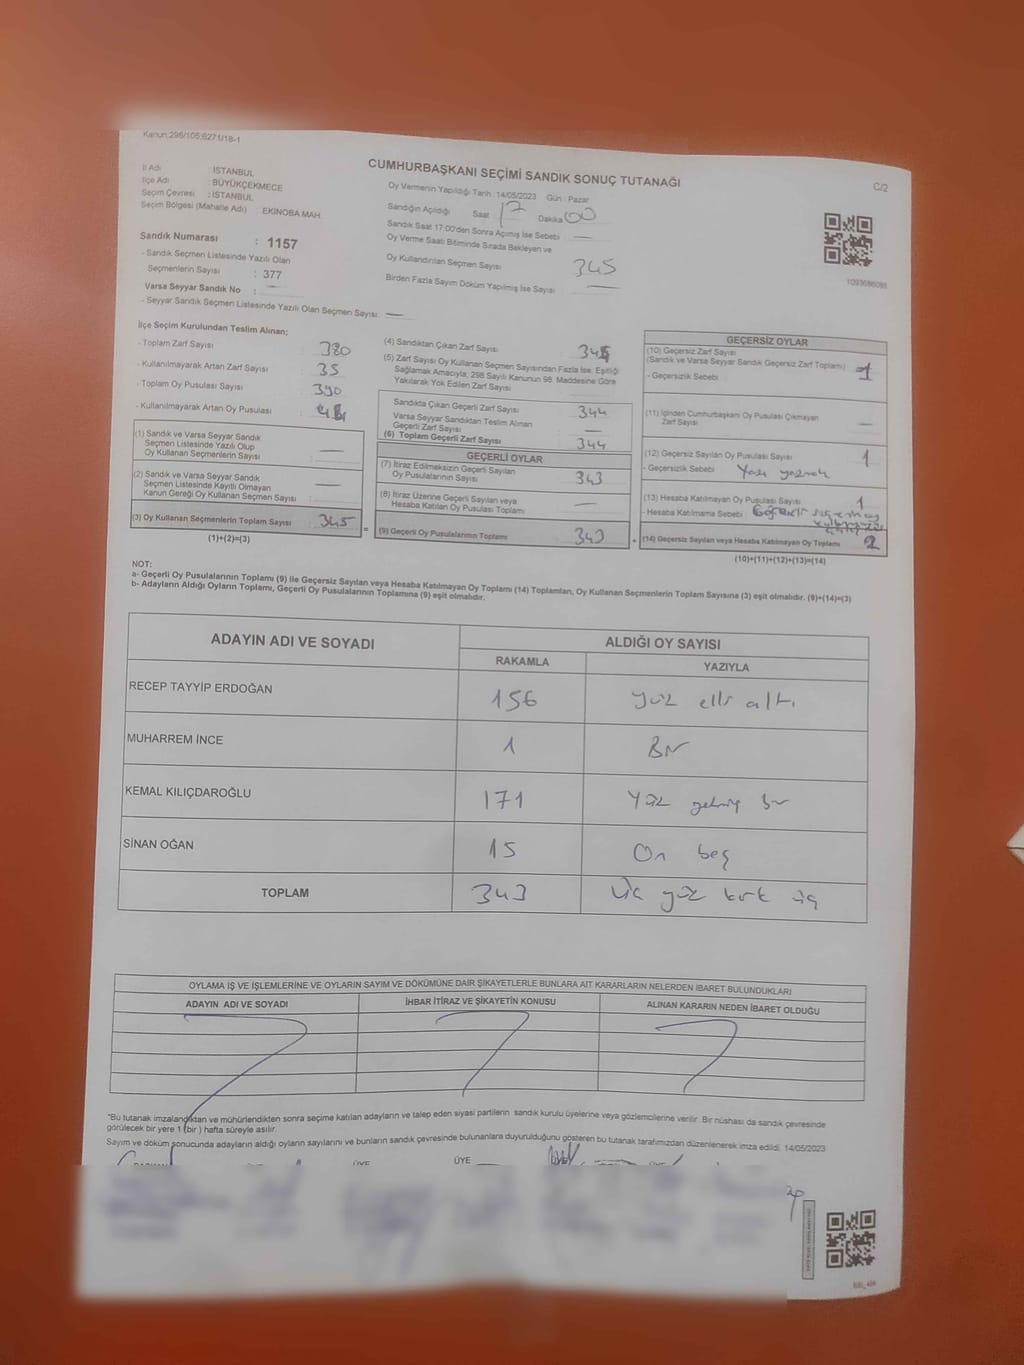 Kanun:298/105;6271/18-1
CUMHURBAŞKANI SEÇİMİ SANDIK SONUÇ TUTANAĞI
C/2
İl Adı : İSTANBUL
İlçe Adı : BÜYÜKÇEKMECE
Seçim Çevresi : İSTANBUL
Seçim Bölgesi (Mahalle Adı) : EKİNOBA MAH.
Sandık Numarası : 1157
- Sandık Seçmen Listesinde Yazılı Olan
Seçmenlerin Sayısı : 377
Varsa Seyyar Sandık No : —
- Seyyar Sandık Seçmen Listesinde Yazılı Olan Seçmen Sayısı: —
Oy Vermenin Yapıldığı Tarih : 14/05/2023 Gün : Pazar
Sandığın Açıldığı Saat 17 Dakika 00
Sandık Saat 17:00'den Sonra Açılmış İse Sebebi —
Oy Verme Saati Bitiminde Sırada Bekleyen ve
Oy Kullandırılan Seçmen Sayısı 345
Birden Fazla Sayım Döküm Yapılmış İse Sayısı —
1093686085
İlçe Seçim Kurulundan Teslim Alınan;
- Toplam Zarf Sayısı 380
- Kullanılmayarak Artan Zarf Sayısı 35
- Toplam Oy Pusulası Sayısı 390
- Kullanılmayarak Artan Oy Pusulası
(1) Sandık ve Varsa Seyyar Sandık
Seçmen Listesinde Yazılı Olup
Oy Kullanan Seçmenlerin Sayısı : —
(2) Sandık ve Varsa Seyyar Sandık
Seçmen Listesinde Kayıtlı Olmayan
Kanun Gereği Oy Kullanan Seçmen Sayısı : —
(3) Oy Kullanan Seçmenlerin Toplam Sayısı : 345
(1)+(2)=(3)
(4) Sandıktan Çıkan Zarf Sayısı 345
(5) Zarf Sayısı Oy Kullanan Seçmen Sayısından Fazla İse, Eşitliği
Sağlamak Amacıyla, 298 Sayılı Kanunun 98. Maddesine Göre
Yakılarak Yok Edilen Zarf Sayısı
Sandıkta Çıkan Geçerli Zarf Sayısı 344
Varsa Seyyar Sandıktan Teslim Alınan
Geçerli Zarf Sayısı —
(6) Toplam Geçerli Zarf Sayısı 344
GEÇERLİ OYLAR
(7) İtiraz Edilmeksizin Geçerli Sayılan
Oy Pusulalarının Sayısı 343
(8) İtiraz Üzerine Geçerli Sayılan veya
Hesaba Katılan Oy Pusulası Toplamı —
(9) Geçerli Oy Pusulalarının Toplamı 343
GEÇERSİZ OYLAR
(10) Geçersiz Zarf Sayısı
(Sandık ve Varsa Seyyar Sandık Geçersiz Zarf Toplamı) 1
- Geçersizlik Sebebi
(11) İçinden Cumhurbaşkanı Oy Pusulası Çıkmayan
Zarf Sayısı —
(12) Geçersiz Sayılan Oy Pusulası Sayısı 1
- Geçersizlik Sebebi Yazı yazmak
(13) Hesaba Katılmayan Oy Pusulası Sayısı 1
- Hesaba Katılmama Sebebi
(14) Geçersiz Sayılan veya Hesaba Katılmayan Oy Toplamı 2
(10)+(11)+(12)+(13)=(14)
NOT:
a- Geçerli Oy Pusulalarının Toplamı (9) ile Geçersiz Sayılan veya Hesaba Katılmayan Oy Toplamı (14) Toplamları, Oy Kullanan Seçmenlerin Toplam Sayısına (3) eşit olmalıdır. (9)+(14)=(3)
b- Adayların Aldığı Oyların Toplamı, Geçerli Oy Pusulalarının Toplamına (9) eşit olmalıdır.
ADAYIN ADI VE SOYADI ALDIĞI OY SAYISI
RAKAMLA YAZIYLA
RECEP TAYYİP ERDOĞAN 156 Yüz elli altı
MUHARREM İNCE 1 Bir
KEMAL KILIÇDAROĞLU 171 Yüz yetmiş bir
SİNAN OĞAN 15 On beş
TOPLAM 343 Üç yüz kırk üç
OYLAMA İŞ VE İŞLEMLERİNE VE OYLARIN SAYIM VE DÖKÜMÜNE DAİR ŞİKAYETLERLE BUNLARA AİT KARARLARIN NELERDEN İBARET BULUNDUKLARI
ADAYIN ADI VE SOYADI İHBAR İTİRAZ VE ŞİKAYETİN KONUSU ALINAN KARARIN NEDEN İBARET OLDUĞU
"Bu tutanak imzalandıktan ve mühürlendikten sonra seçime katılan adayların ve talep eden siyasi partilerin sandık kurulu üyelerine veya gözlemcilerine verilir. Bir nüshası da sandık çevresinde
görülecek bir yere 1 (bir ) hafta süreyle asılır.
Sayım ve döküm sonucunda adayların aldığı oyların sayılarını ve bunların sandık çevresinde bulunanlara duyurulduğunu gösteren bu tutanak tarafımızdan düzenlenerek imza edildi. 14/05/2023
BAŞKAN ÜYE ÜYE